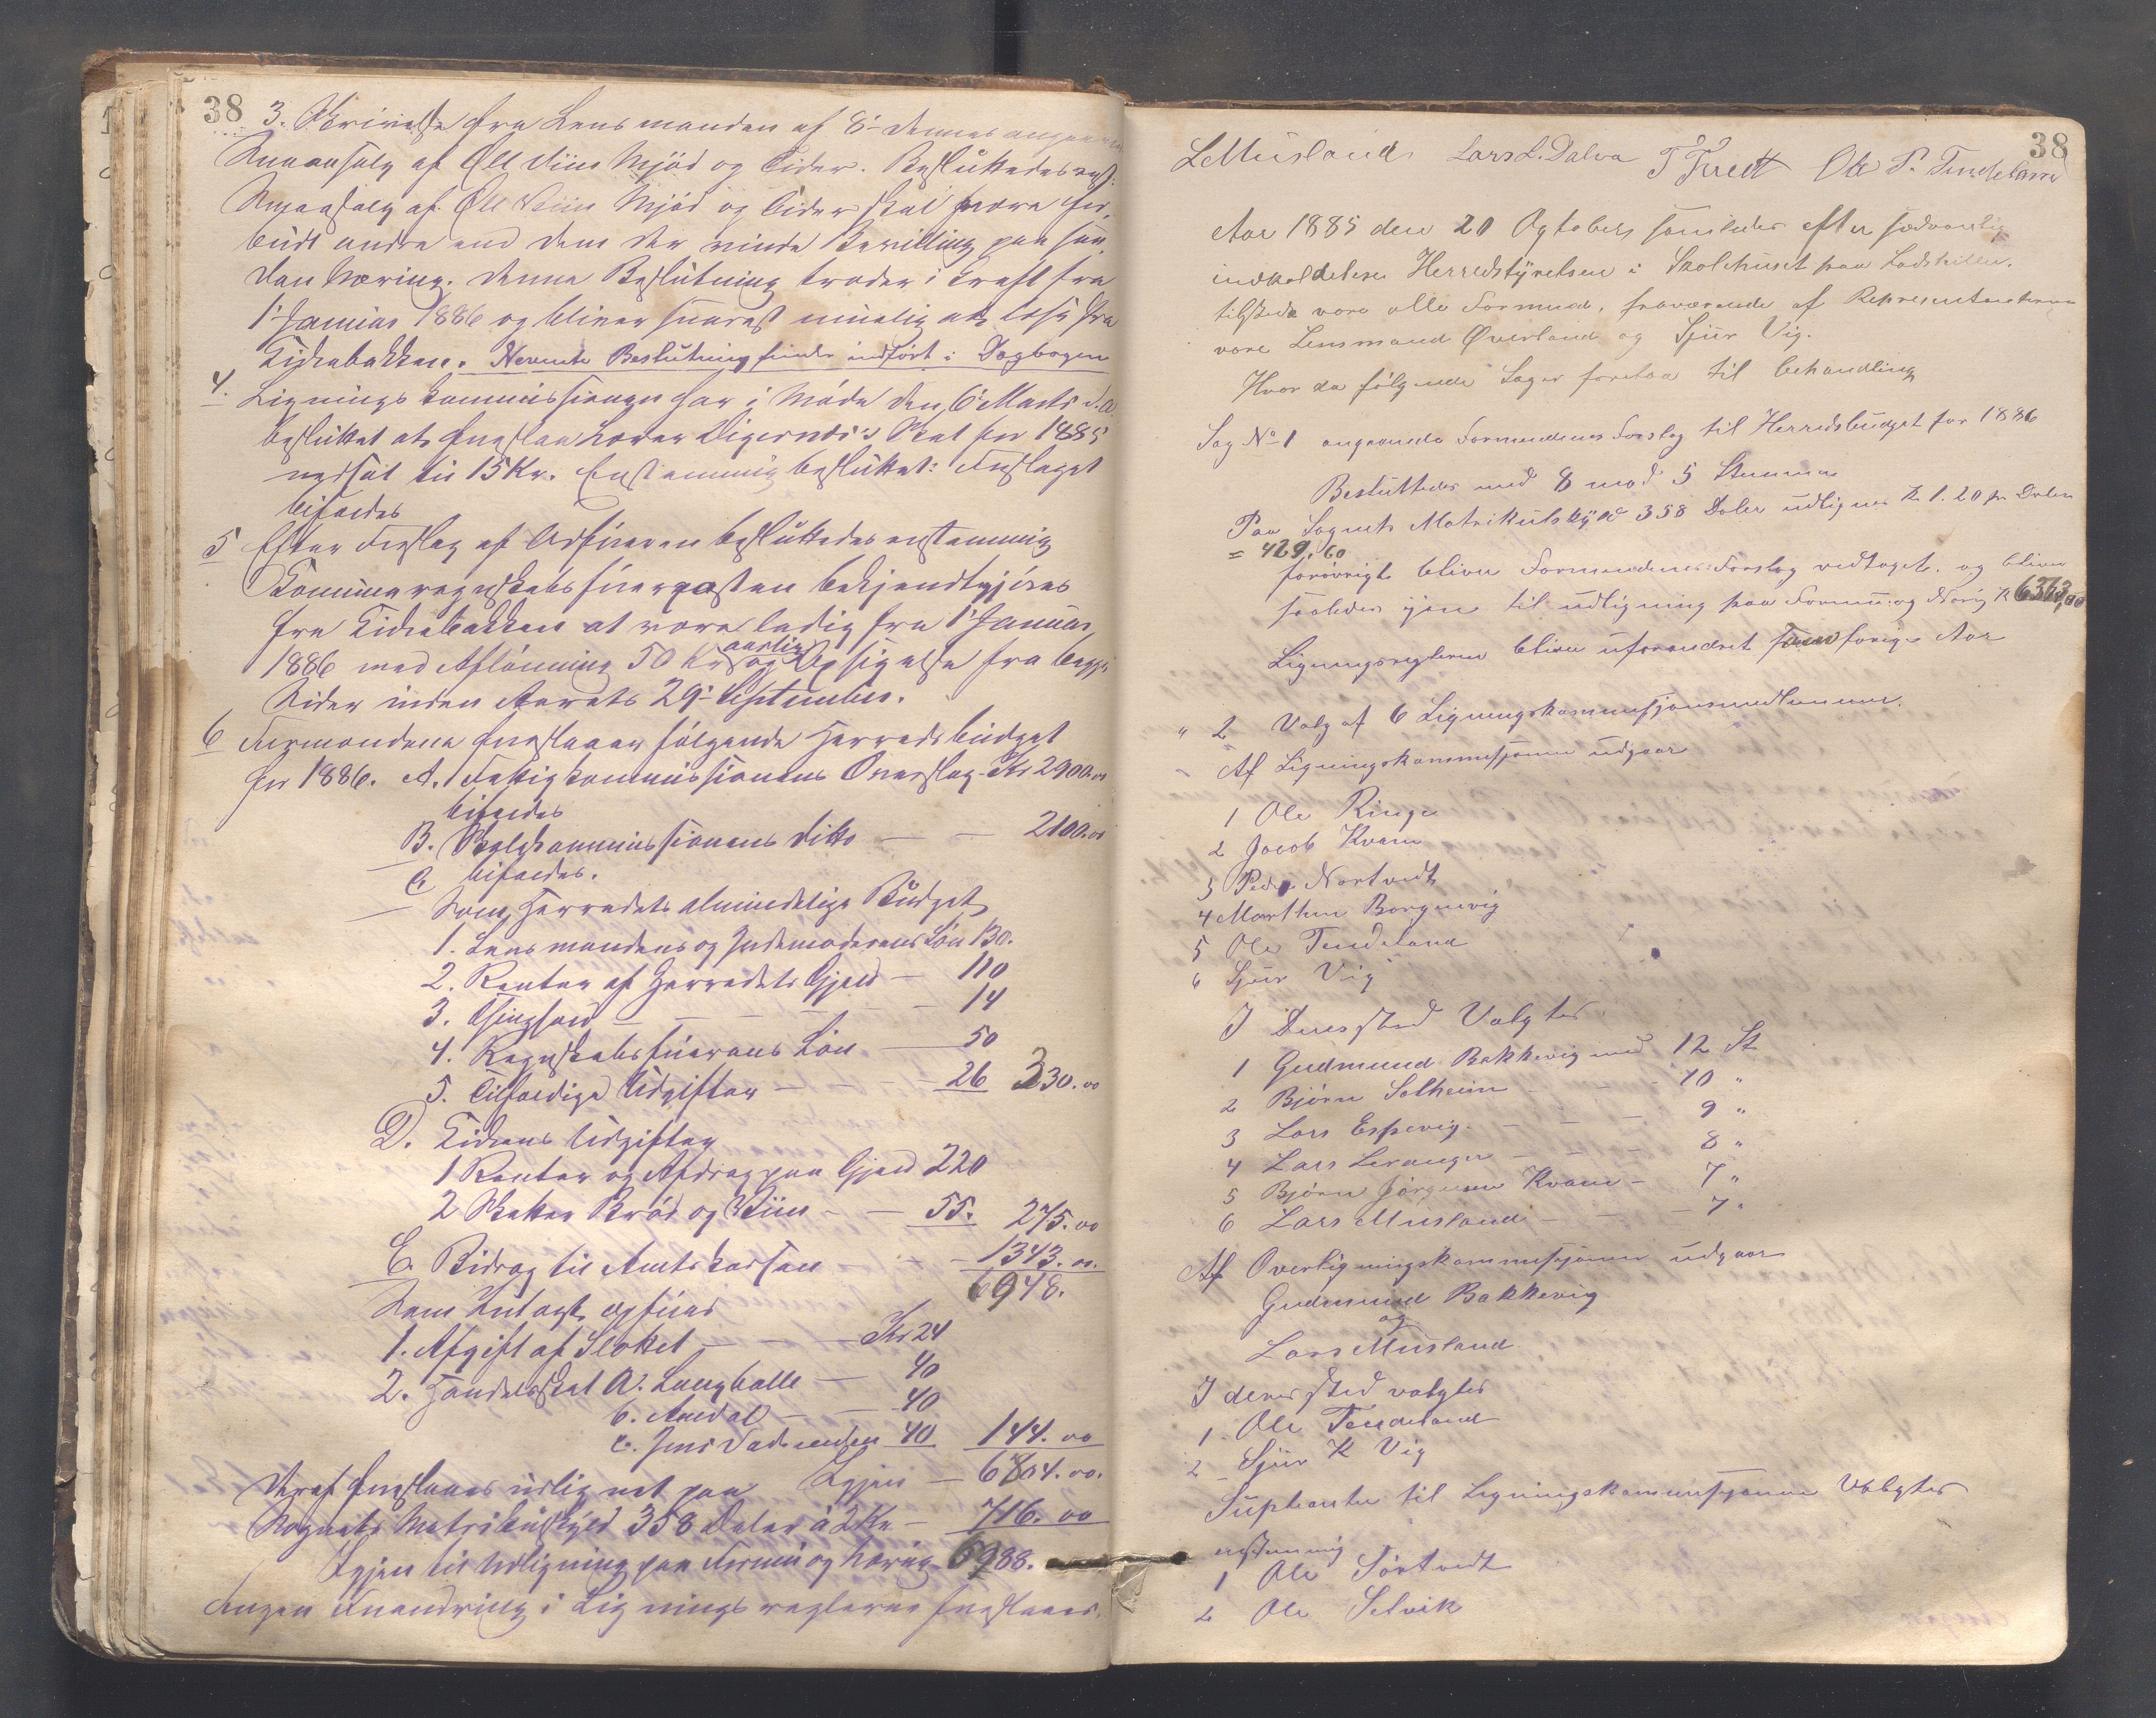 38
3. Skrivelse fra Lensmanden af 8de dennes angaaende
Smaasalg af Øll Viin Mjød og Cider. Besluttedes enst:
Smaasalg af Øll Viin Mjød og Cider skal være for-
budt andre end dem der vinde Bevilling paa saa-
dan Næring. Denne Beslutning træder i Kraft fra
1ste Januar 1886 og bliver snarest muelig at læse fra
Kirkebakken. Nevnte Beslutning findes indført i Dagbogen
4. Ligningskommissionen har i Møde den 6te Marts d. A.
besluttet at foreslaa Digernæs's Skat for 1885
nedsat til 15 Kr. Enstemmig besluttet: Forslaget
bifaldes
5 Efter Forslag af Ordføreren besluttedes enstemmig
Kommuneregnskabsførerposten bekjendtgjøres
fra Kirkebakken at være ledig fra 1ste Januar
1886 med Aflønning 50 Kr aarlig og Opsigelse fra begge
Sider inden Aarets 29de September.
6 Formændene foreslaaer følgende Herredsbudget
for 1886. A. Fattigkommissionens Overslag - Kr 2900.00
bifaldes
B. Skolekommissionens ditto — — 2100.00
bifaldes.
C
Som Herredets almindelige Budget
1. Lensmandens og Jordemoderens Løn 130.
2. Renter af Herredets Gjæld — 110
3. Thinghold — — — — — 14
4. Regnskabsførerens Løn — 50
5. Tilfældige Udgifter — — — 26 330.00
D. Kirkens Udgifter
1 Renter og Afdrag paa Gjæld 220
2 Skatter Brød og Viin — — 55. 275.00
E. Bidrag til Amtskassen — 1343.00.
6948.
Som Indtægt opføres
1. Afgift af Slottet — — Kr 24
2. Handelsskat A. Langballe — 40
b. Auedal — — 40
c. Jens Vadseneden 40 144.00
Igjen — 6804.00.
Deraf foreslaaes udlignet paa
Sognets Matrikulskyld 358 Daler à 2 Kr — 716.00
Igjen til Udligning paa Formue og Næring 6088.
Ingen Forandring i Ligningsreglerne foreslaaes.
38
L Müsland Lars L. Dalva T Tvedt Ole P. Tendeland
Aar 1885 den 20 Ogtober samledes efter sædvanlig
indkaldelse Herredstyrelsen i Skolehuset paa Ladstillen.
tilstede vare alle Formænd, fraværende af Repræsentanterne
vare Lensmand Øverland og Sjur Vig.
Hvor da følgende Sager foretoes til behandling
Sag No 1 angaaende Formændenes Forslag til Herredsbudget for 1886
Besluttedes med 8 mod 5 Stemmer
Paa Sognets Matrikulskyld 358 Daler udlignes Kr 1.20 pr Daler
= 429.60
forøvrigt bliver Formændenes Forslag vedtaget. og bliver
saaledes igen til udligning paa Formue og Næring Kr 6373,00
Ligningsreglerne bliver uforandret som forrige Aar
" 2 Valg af 6 Ligningskommisjonsmedlemmer.
Af Ligningskommisjonen udgaar
1 Ole Ringe
2 Jacob Kvam
3 Peder Nortvedt
4 Marthin Borgnevig
5 Ole Tendeland
6 Sjur Vig
I Deres sted Valgtes
1 Gudmund Bakkevig med 12 St
2 Bjørn Solheim — — - 10 "
3 Lars Espevig - — — 9 "
4 Lars Levanger — — - 8 "
5 Bjørn Jørgensen Kvam — 7 "
6 Lars Musland — — — 7 "
Af Overligningskommisjonen udgaar
Gudmund Bakkevig
og
Lars Musland
I deres sted valgtes
1. Ole Tendeland
2 Sjur K Vig
Supleanter til Ligningskommisjonen Valgtes
enstemmig
1 Ole Tørtvedt
2 Ole Selvik